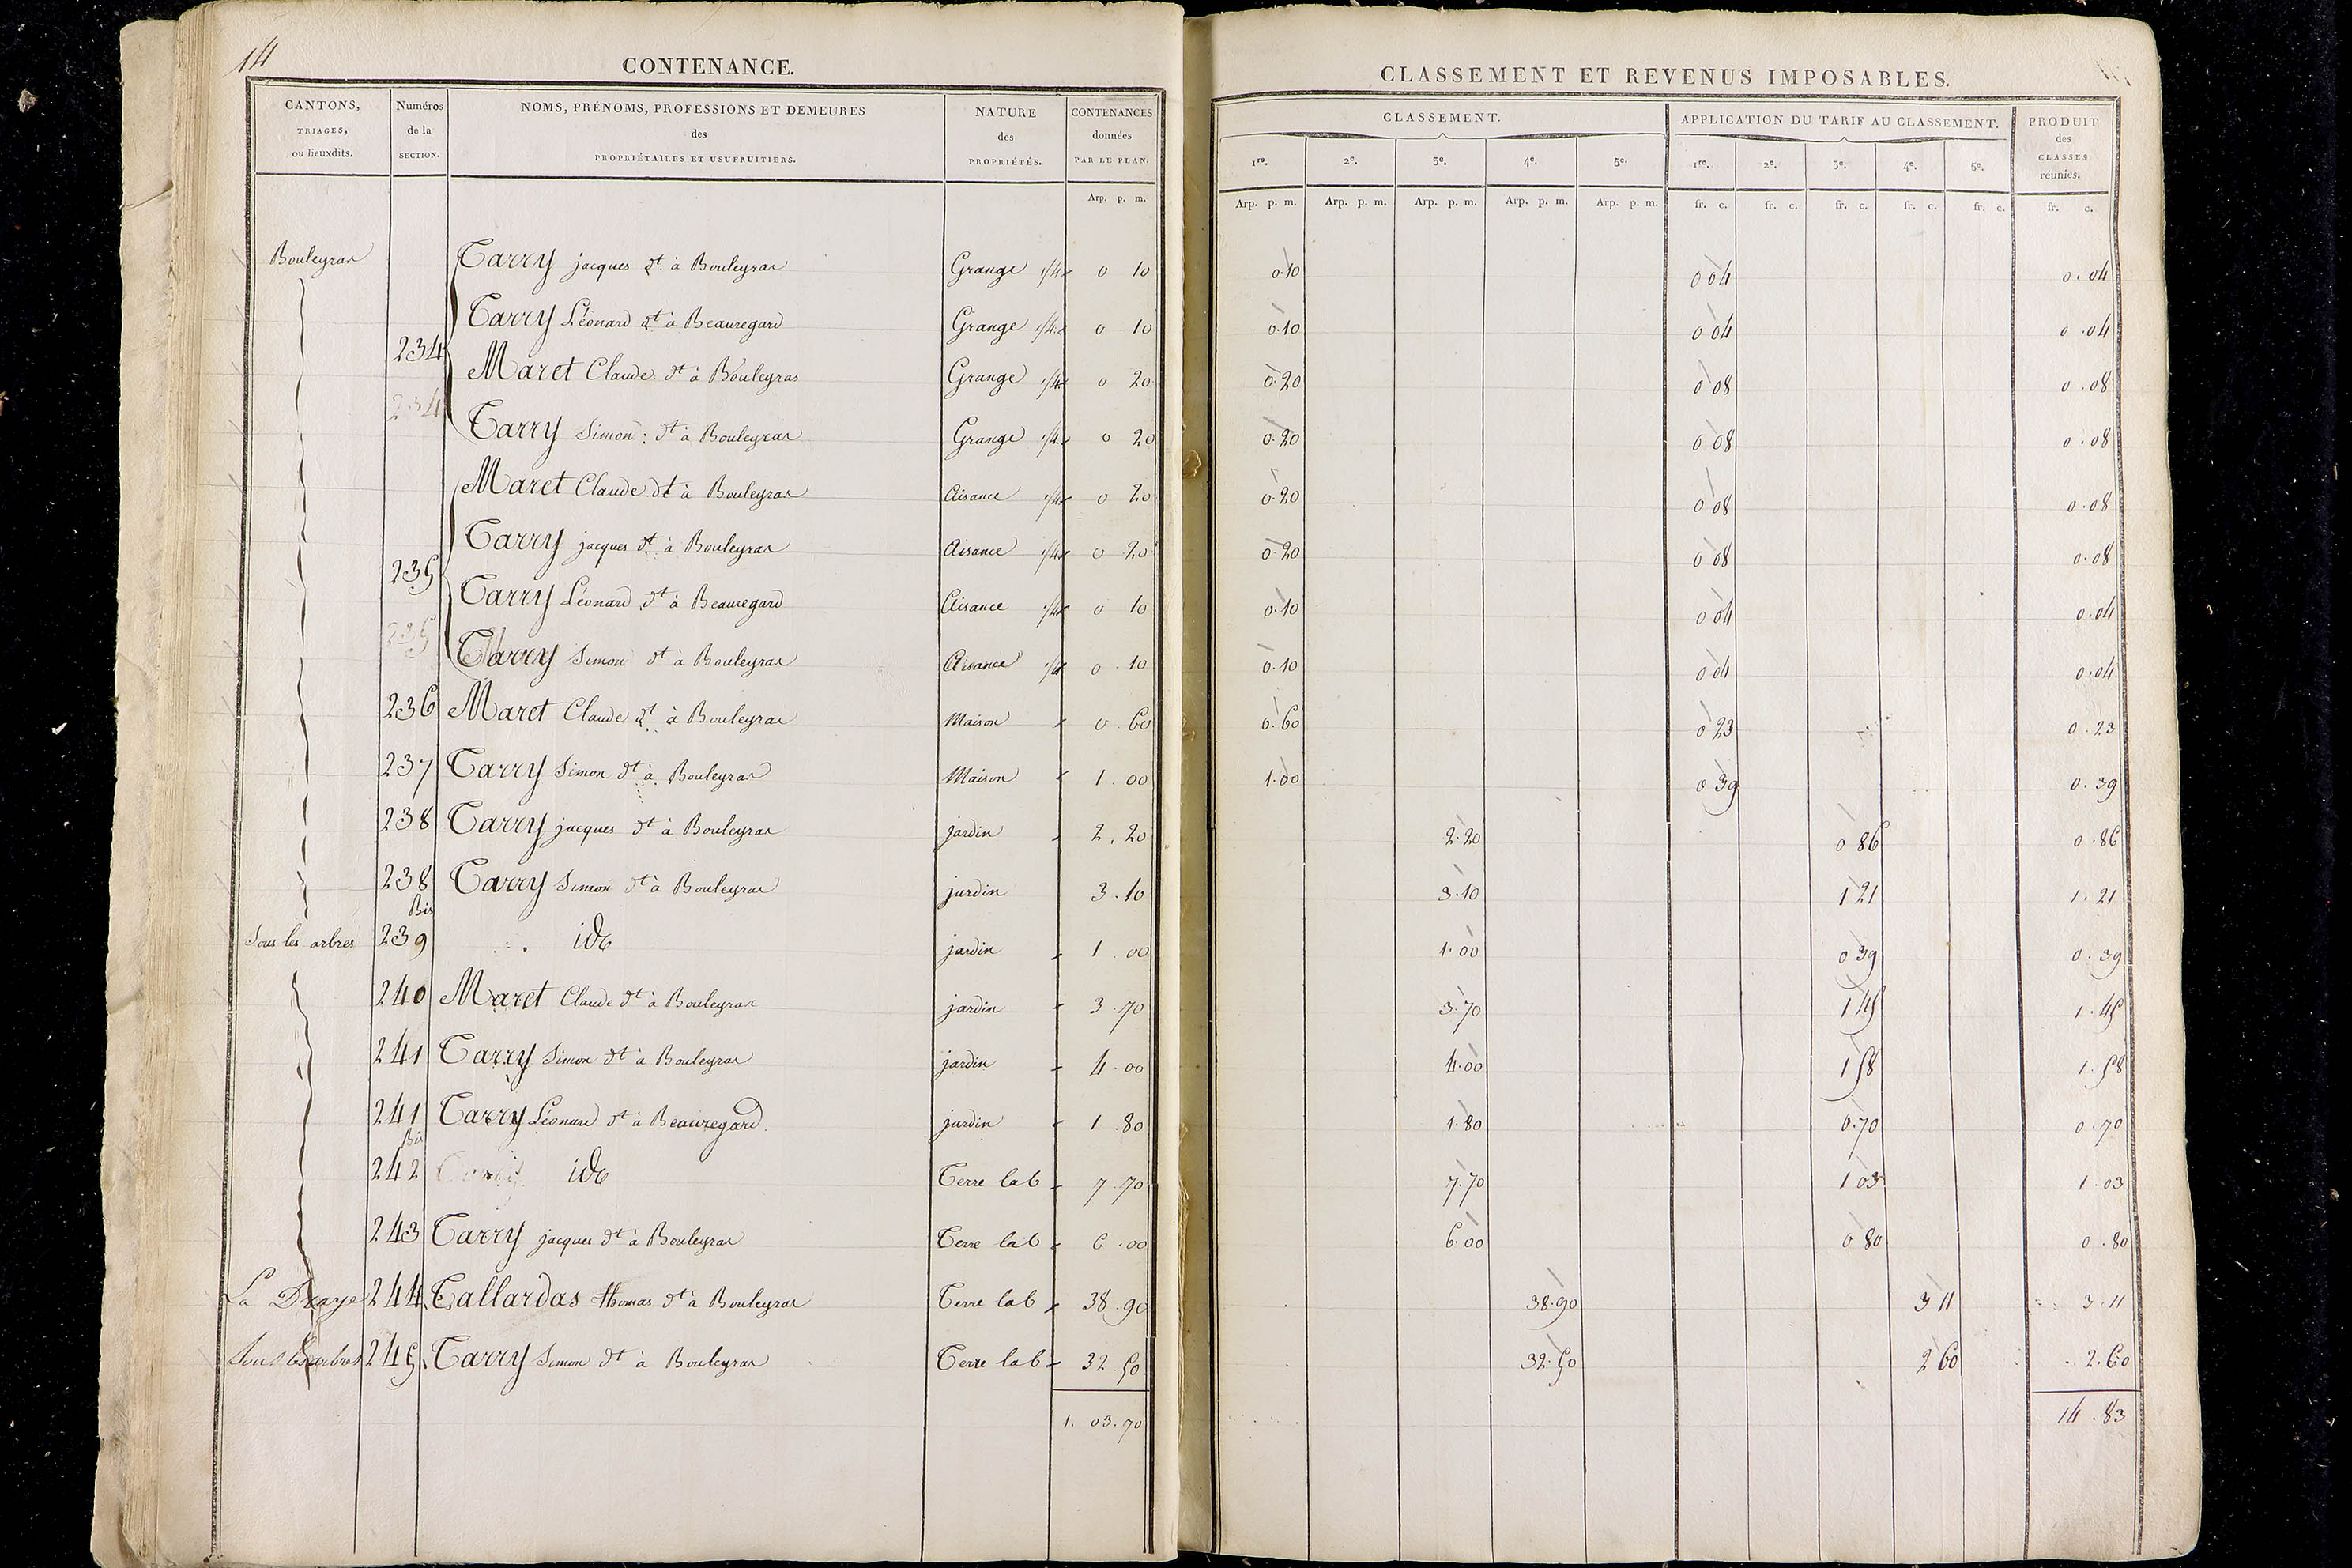 14
CONTENANCE.
CANTONS, TRIAGES, ou lieuxdits.
Numéros de la SECTION.
NOMS, PRÉNOMS, PROFESSIONS ET DEMEURES des PROPRIÉTAIRES ET USUFRUITIERS.
NATURE des PROPRIÉTÉS.
CONTENANCES données PAR LE PLAN.
Arp. p. m.
CLASSEMENT ET REVENUS IMPOSABLES.
CLASSEMENT.
APPLICATION DU TARIF AU CLASSEMENT.
PRODUIT des CLASSES réunies.
1re. 2e. 3e. 4e. 5e. 1re. 2e. 3e. 4e. 5e.
Arp. p. m. Arp. p. m. Arp. p. m. Arp. p. m. Arp. p. m. fr. c. fr. c. fr. c. fr. c. fr. c. fr. c.
Bouleyras Tarry jacques dt à Bouleyras Grange 1/4 0 10 0.10 0 04 0.04
Tarry Léonard dt à Beauregard Grange 1/4 0 10 0.10 0 04 0.04
234 Maret Claude dt à Bouleyras Grange 1/4 0 20 0.20 0 08 0.08
234 Tarry Simon: dt à Bouleyras Grange 1/4 0 20 0.20 0 08 0.08
Maret Claude dt à Bouleyras Aisance 1/4 0 20 0.20 0 08 0.08
Tarry jacques dt à Bouleyras Aisance 1/4 0 20 0.20 0 08 0.08
235 Tarry Léonard dt à Beauregard Aisance 1/4 0 10 0.10 0 04 0.04
235 Tarry Simon dt à Bouleyras Aisance 1/4 0.10 0.10 0 04 0.04
236 Maret Claude dt à Bouleyras Maison 0.60 0.60 0 23 0.23
237 Tarry Simon dt à Bouleyras Maison 1.00 1.00 0 39 0.39
238 Tarry jacques dt à Bouleyras jardin 2.20 2.20 0 86 0.86
238 Bis Tarry Simon dt à Bouleyras jardin 3.10 3.10 1 21 1.21
Sous les arbres 239 ide jardin 1.00 1.00 0 39 0.39
240 Maret Claude dt à Bouleyras jardin 3.70 3.70 1 45 1.45
241 Tarry Simon dt à Bouleyras jardin 4.00 4.00 1 58 1.58
241 Bis Tarry Léonard dt à Beauregard. jardin 1.80 1.80 0.70 0.70
242 ide Terre lab 7.70 7.70 1 03 1.03
243 Tarry jacques dt à Bouleyras Terre lab 6.00 6.00 0 80 0.80
La Draye 244 Tallardas thomas dt à Bouleyras Terre lab 38.90 38.90 3 11 3.11
Sous les arbres 245 Tarry Simon dt à Bouleyras Terre lab 32.50 32.50 2 60 2.60
1.03.70 14.83